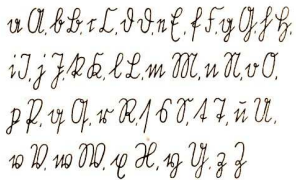 a A, b B, c C, d D, e E, f F, g G, h H,
i I, j J, k K, l L, m M, n N, o O,
p P, q Q, r R, ſ s S, t T, u U,
v V, w W, x X, y Y, z Z